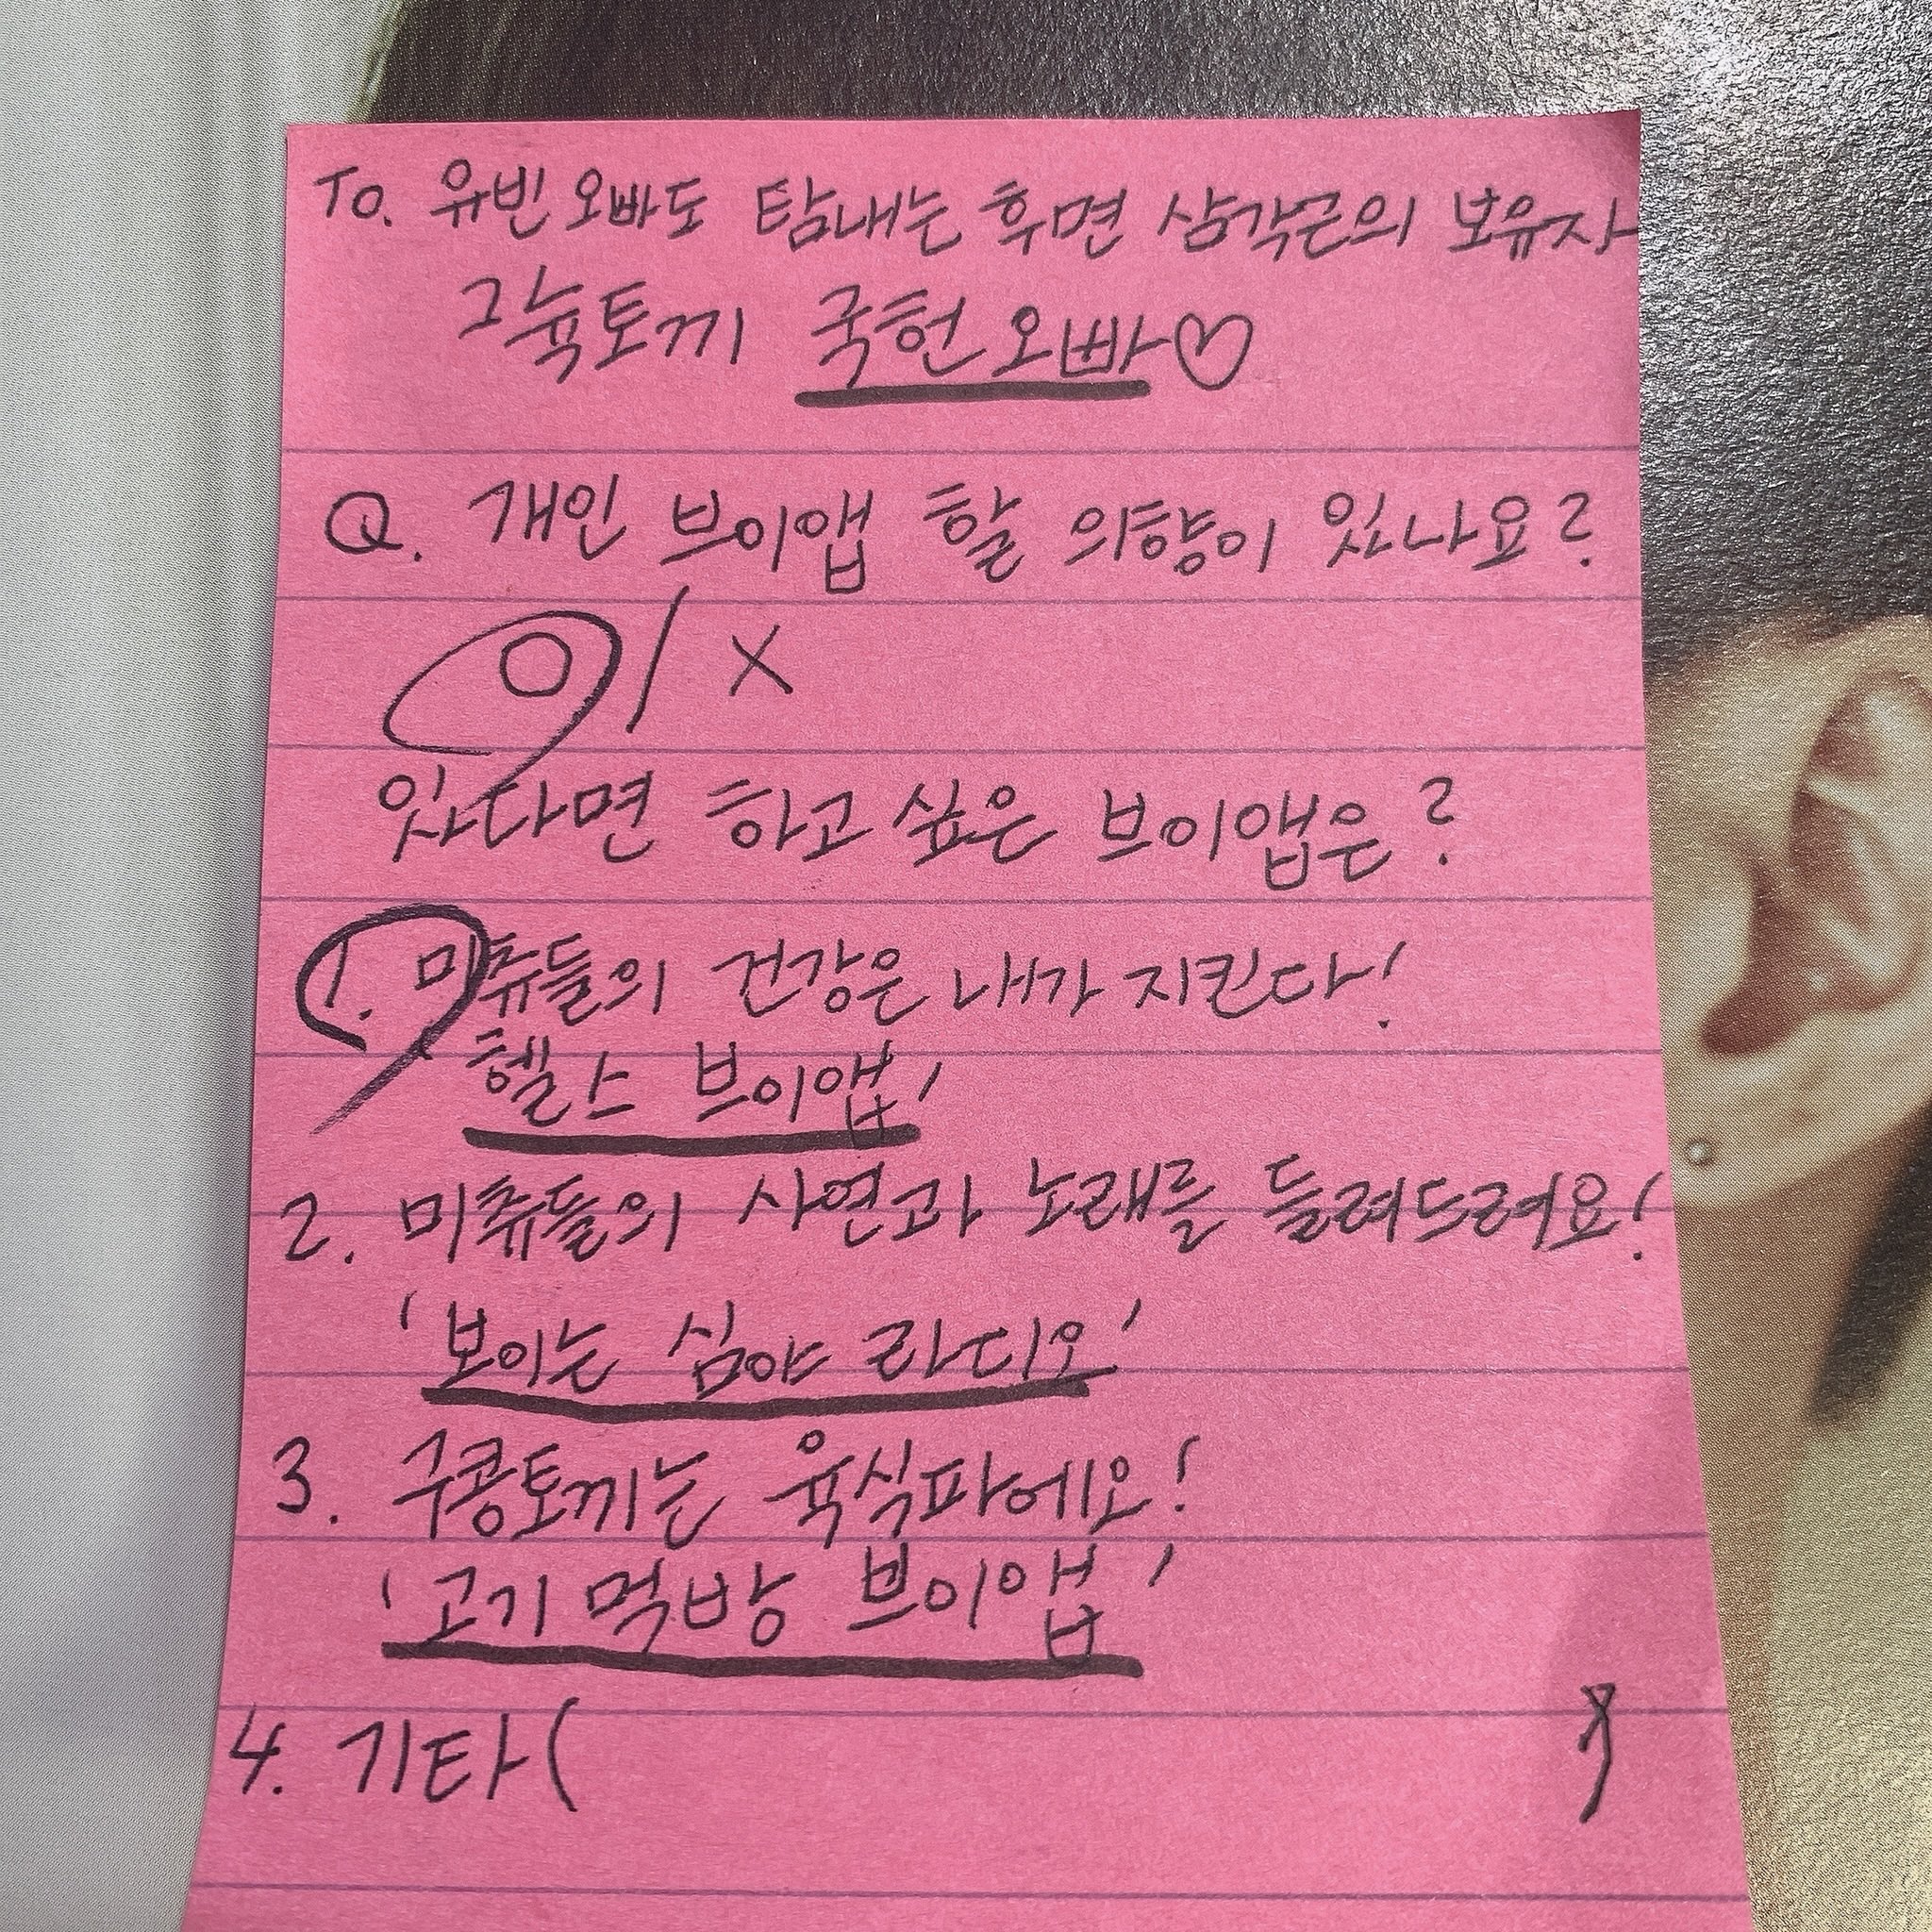 To. 유빈 오빠도 탐내는 후면 삼각근의 보유자
그늌토끼 국헌 오빠♡
Q. 개인 브이앱 할 의향이 있나요?
O / X
있다면 하고 싶은 브이앱은?
1. 미츄들의 건강은 내가 지킨다!
헬스 브이앱'
2. 미츄들의 사연과 노래를 들려드려요!
'보이는 심야 라디오'
3. 구콩토끼는 육식파에요!
'고기 먹방 브이앱'
4. 기타(